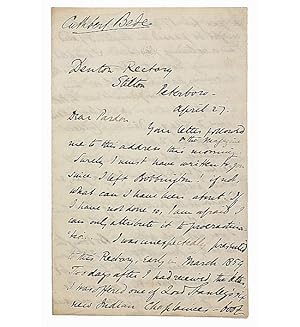 Cuthbert Bede
Denton Rectory
Stilton
Peterboro.
April 27.
Dear Pardon.
Your letter followed
me to this address this morning
Surely I must have written to you
since I left Bobbington! if not,
what can I have been about. If
I have not done so, I am afraid I
can only attribute it to procrastina-
I was unexpectedly presented
to this Rectory, early in March 1859
Two days after I had received the
I was offered one of Lord Stanley's
new Indian Chaplaincies